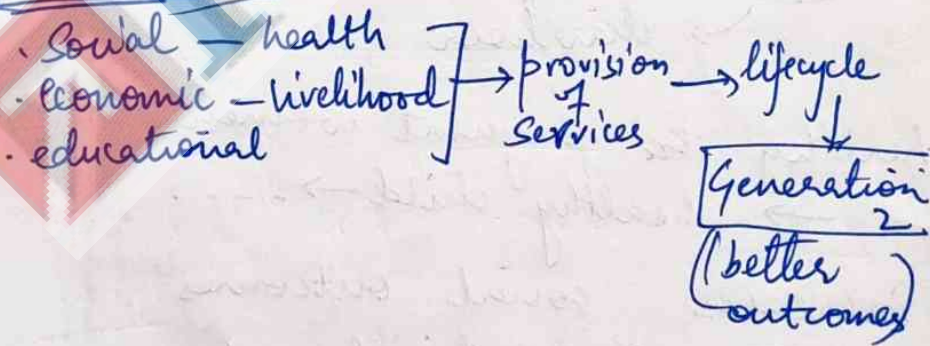 · Social — health
· Economic — livelihood
· educational
→ provision
of
services
→ lifecycle
↓
Generation
2
(better
outcomes)